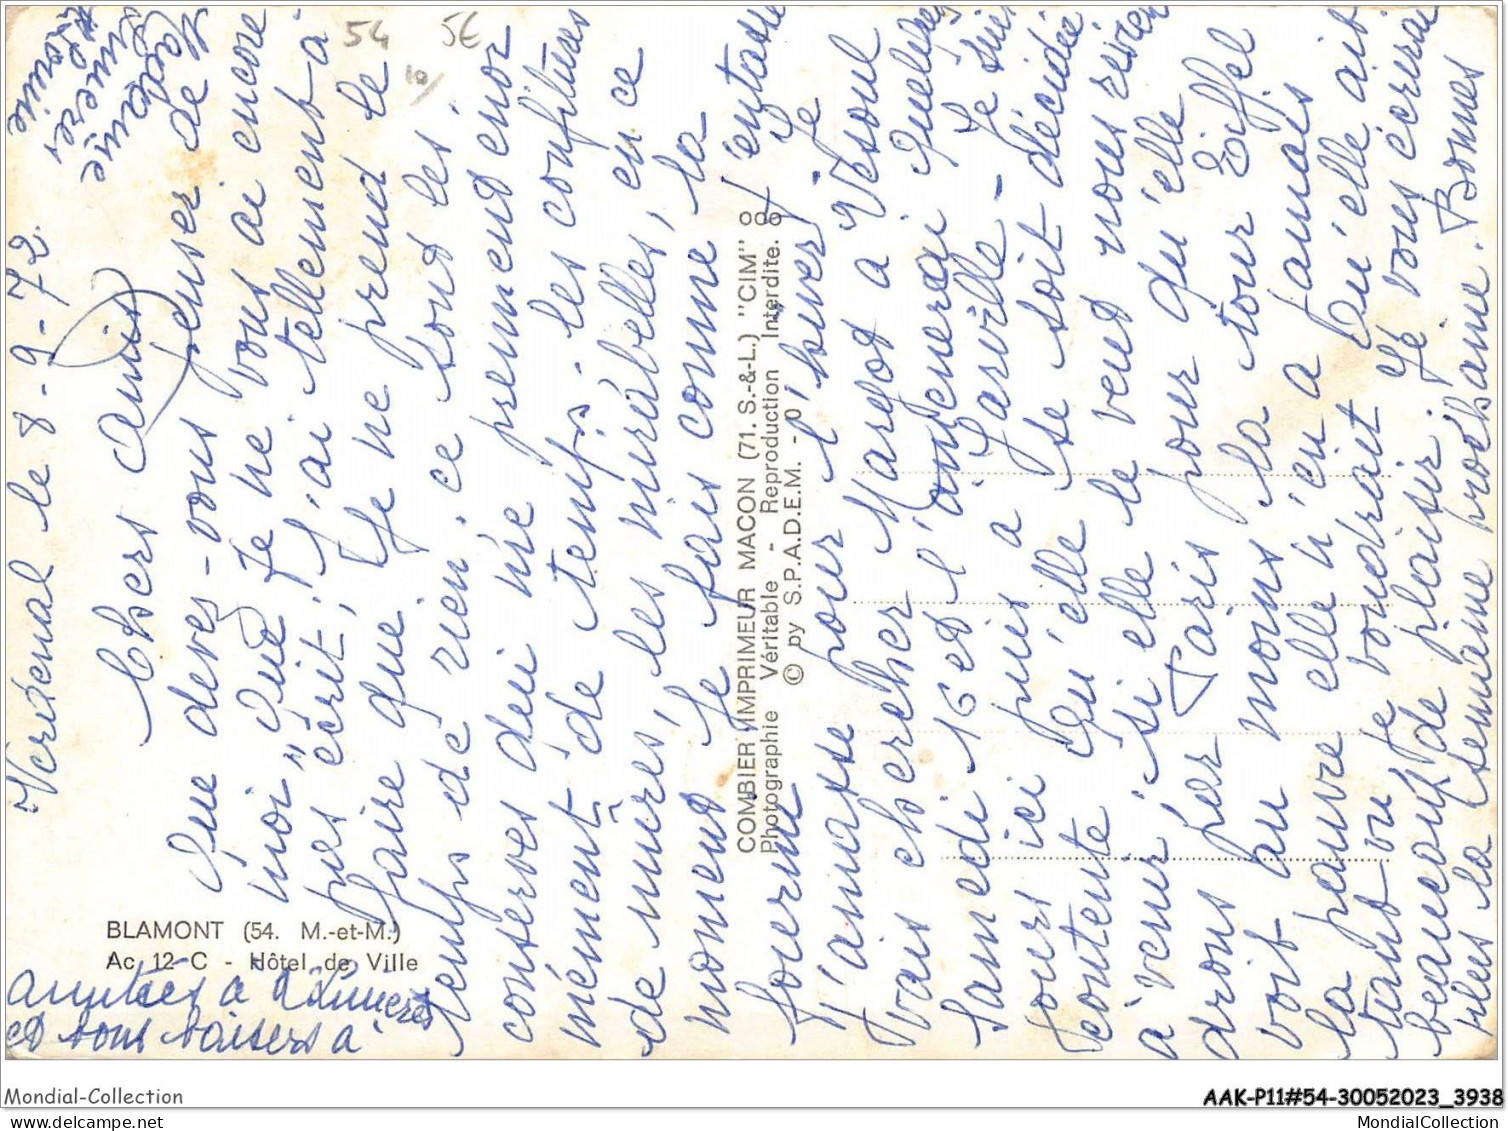 Verdenal le 8-9-72
Chers amis
Que devez-vous penser de
moi, que je ne vous ai encore
pas écrit; J'ai tellement à
faire que je ne prend le
temps de rien. ce sont les
conserves qui me prennend enor
mément de temps. les confitures
de mûres, les mirabelles, en ce
moment Je fais comme la
fourmie J'entasse
J'amasse pour l'hiver Je
vais chercher Margot a Vesoul
samedi 16 et l'amenerai quelques
jours ici puis a Sarville - Je suis
contente qu'elle se soit décidée
à venir si elle le veut nous revien
drons par Paris pour qu'elle
voit au moins la tour Eiffel
la pauvre elle n'en a jamais
tant vu Je voudrait qu'elle ait
beaucoup de plaisir. Je vous écrirai
plus la semaine prochaine. Bonnes
amitiés à
et bons baisers à
BLAMONT (54. M.-et-M.)
Ac 12 C - Hôtel de Ville
COMBIER IMPRIMEUR MACON (71. S.-&-L.) "CIM"
Photographie Véritable - Reproduction Interdite.
© by S.P.A.D.E.M. - 0
54
5€
10/
Mondial-Collection
AAK-P11#54-30052023_3938
MondialCollection